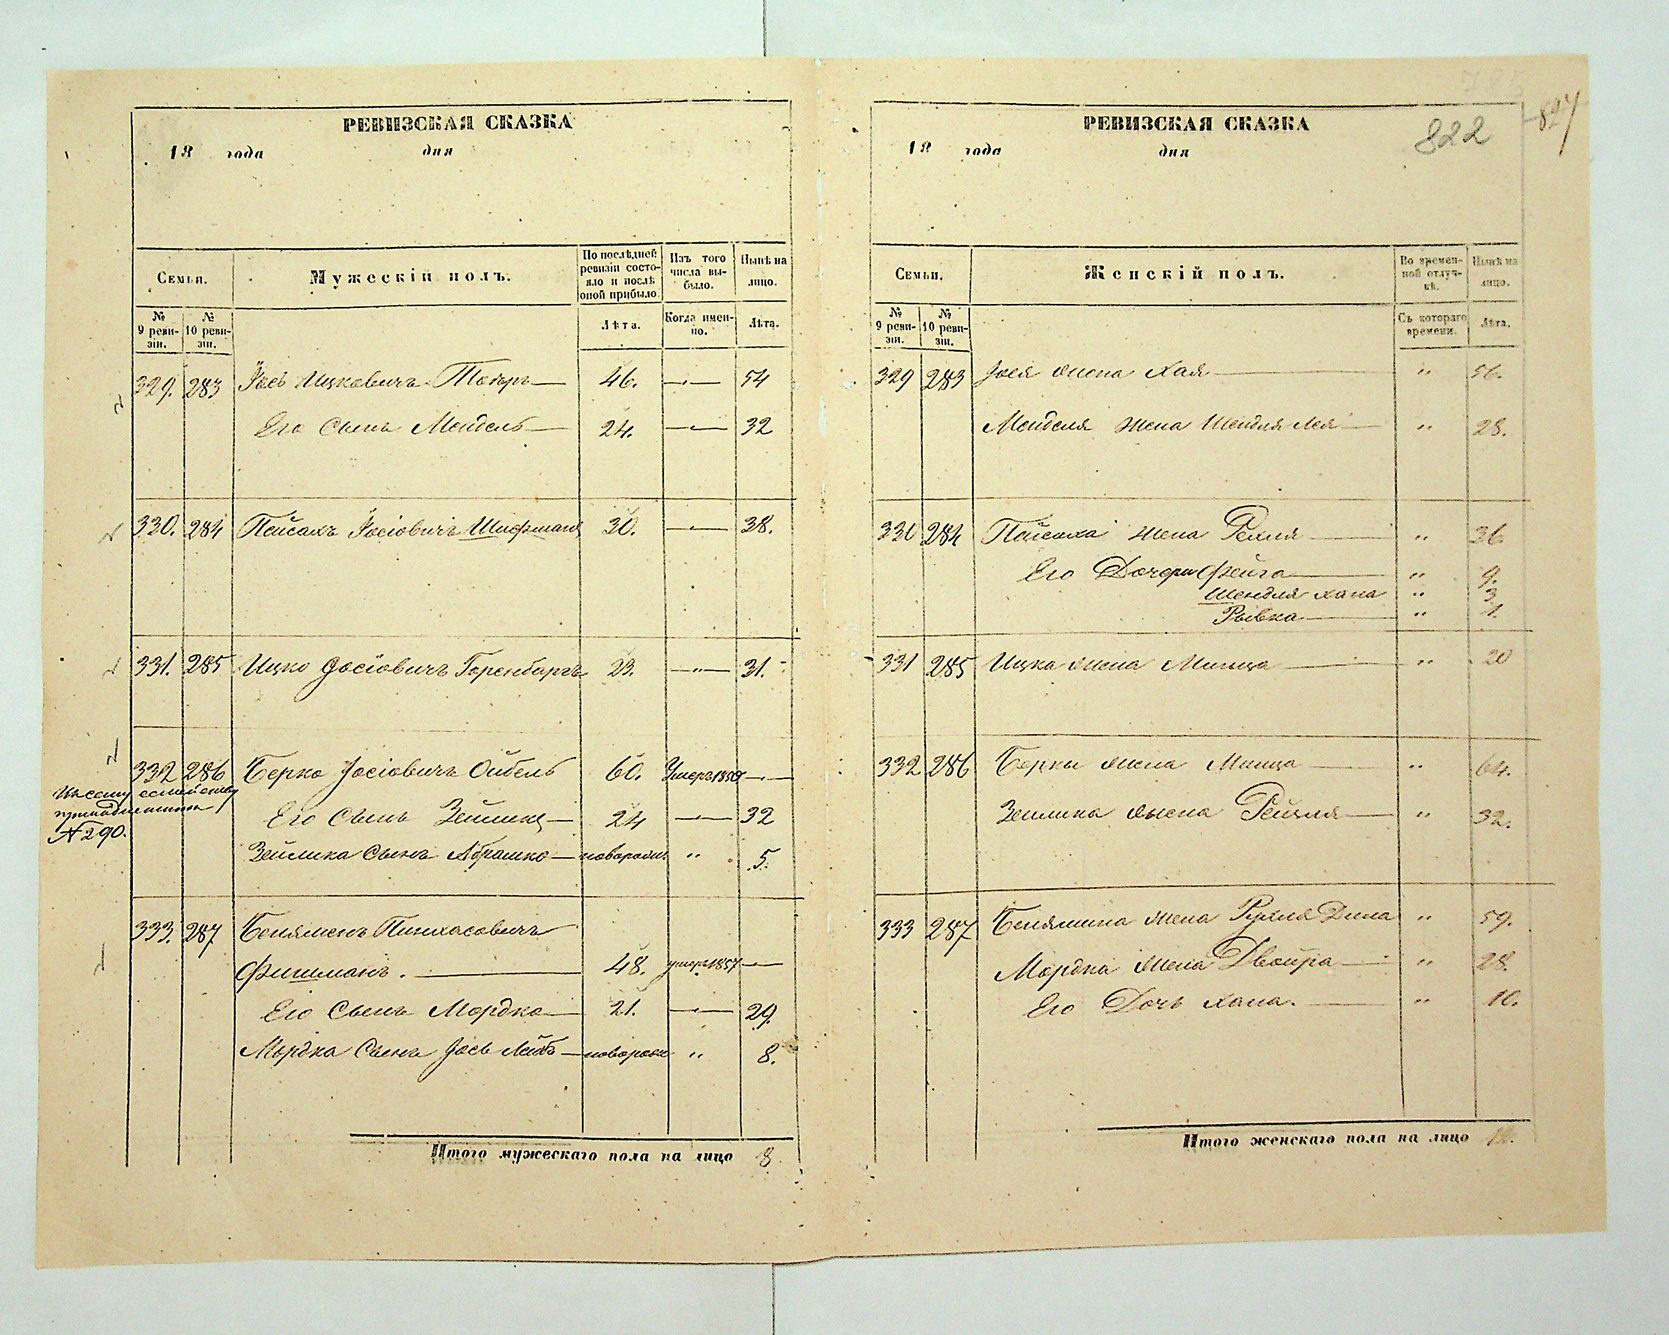 822
827
РЕВИЗСКАЯ СКАЗКА
18 года дня
Семьи.
Мужескій полъ.
По послѣдней ревизіи состояло и послѣ оной прибыло
Изъ того числа выбыло.
Нынѣ на лицо.
№ 9 ревизіи.
№ 10 ревизіи.
Лѣта.
Когда именно.
Лѣта.
329. 283 Іось Ицковичъ 46. — " — 54
Его Сынъ Мендель 24. — " — 32
330. 284 Пейсахъ Іосіовичъ Шифманъ 30. — " — 38.
331. 285 Ицко Іосіовичъ Горенбергъ 23. — " — 31.
332 286 Берко Іосіовичъ 60. Умеръ 1858 —
Къ сему семейству
№ 290.
Его Сынъ Зейликъ 24 — " — 32
Зейлика Сынъ Абрашко новорожд " 5.
333. 287 Беняменъ Пинхасовичъ
Фишманъ. 48. умеръ 1857 —
Его Сынъ Мордко 21. — " — 29.
Мордка Сынъ Іось Лейб новорожд " 8.
Итого мужескаго пола на лицо 8.
РЕВИЗСКАЯ СКАЗКА
18 года дня
Семьи.
Женскій полъ.
Во временной отлучкѣ.
Нынѣ на лицо.
№ 9 ревизіи.
№ 10 ревизіи.
Съ котораго времени.
Лѣта.
329 283 Іося жена Хая " 56.
Менделя жена Шендля Лея " 28.
330 284 Пейсаха жена Рехля " 36
Его Дочери Фейга " 9.
Шендля Хана " 3.
Рывка " 1.
331 285 Ицка жена Минца " 20
332 286 Берки жена Минца " 64.
Зейлика жена Рейзля " 32.
333 287 Бенямина жена Рухля Дина " 59.
Мордка жена Двойра " 28.
Его Дочь Хана. " 10.
Итого женскаго пола на лицо